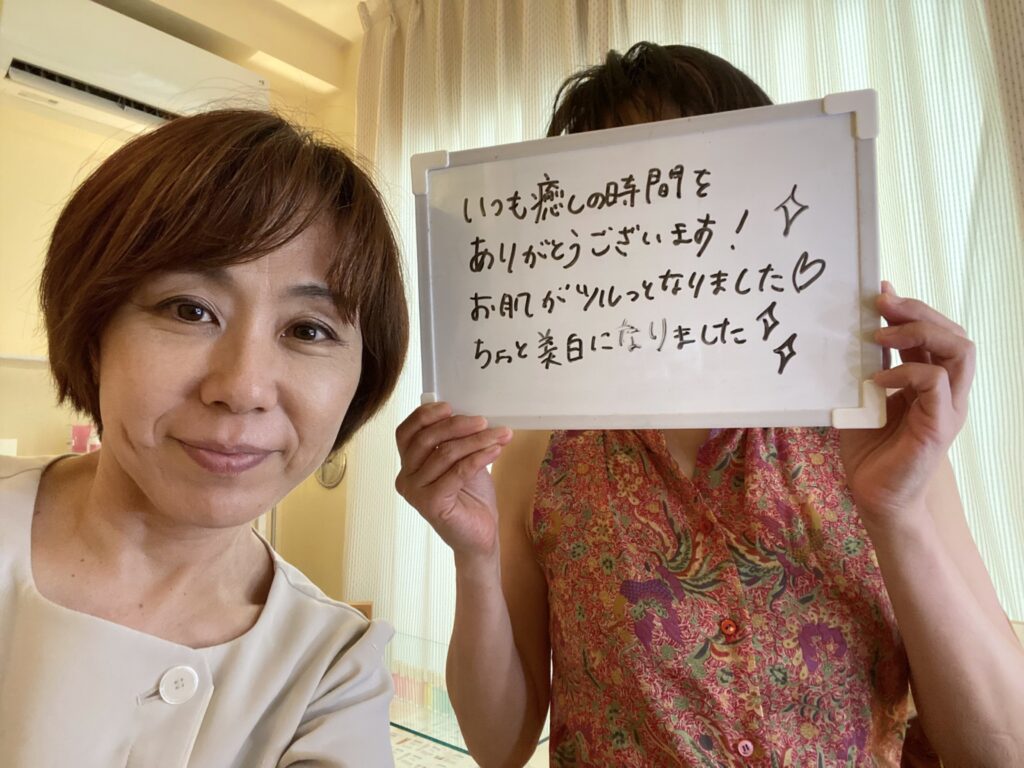 いつも癒しの時間を
ありがとうございます!
お肌がツルっとなりました♡
ちょっと美白になりました